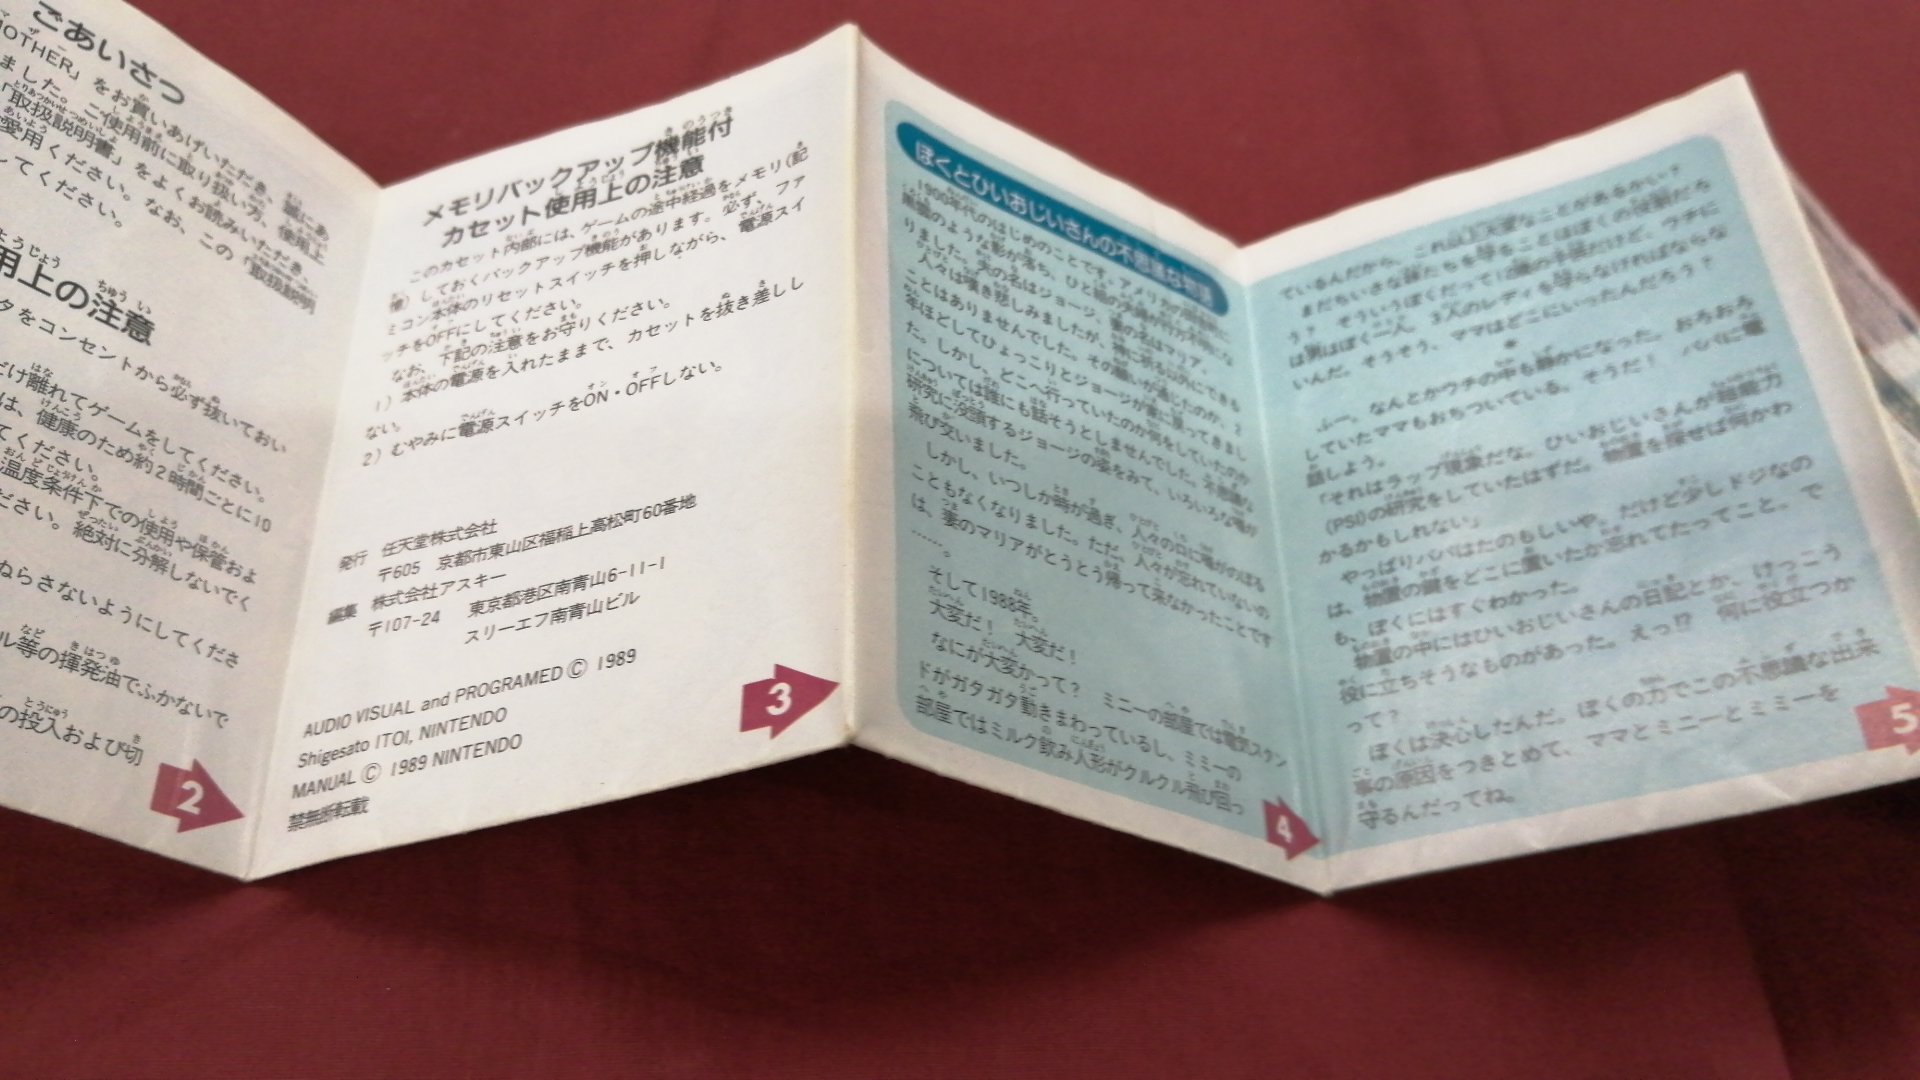 ごあいさつ
MOTHER」をお買いあげいただき、誠にあ
ました。ご使用前に取り扱い方、使用上
「取扱説明書」をよくお読みいただき、
愛用ください。なお、この「取扱説明
してください。
用上の注意
タをコンセントから必ず抜いておい
だけ離れてゲームをしてください。
は、健康のため約2時間ごとに10
てください。
温度条件下での使用や保管およ
ださい。絶対に分解しないでく
ねらさないようにしてくださ
ル等の揮発油でふかないで
の投入および切
2
メモリバックアップ機能付
カセット使用上の注意
このカセット内部には、ゲームの途中経過をメモリ(記
憶)しておくバックアップ機能があります。必ず、ファ
ミコン本体のリセットスイッチを押しながら、電源スイ
ッチをOFFにしてください。
なお、下記の注意をお守りください。
1)本体の電源を入れたままで、カセットを抜き差しし
ない。
2)むやみに電源スイッチをON・OFFしない。
発行 任天堂株式会社
〒605 京都市東山区福稲上高松町60番地
編集 株式会社アスキー
〒107-24 東京都港区南青山6-11-1
スリーエフ南青山ビル
AUDIO VISUAL and PROGRAMED © 1989
Shigesato ITOI, NINTENDO
MANUAL © 1989 NINTENDO
禁無断転載
3
ぼくとひいおじいさんの不思議な
1900年代のはじめのことです。アメリカの
黒雲のような影が落ち、ひと組の夫婦が行方不明にな
りました。夫の名はジョージ、妻の名はマリア。
人々は嘆き悲しみましたが、神に祈る以外にできる
ことはありませんでした。その願いが通じたのか、2
年ほどしてひょっこりとジョージが家に戻ってきまし
た。しかし、どこへ行っていたのか何をしていたのか
については誰にも話そうとしませんでした。不思議な
研究に没頭するジョージの姿をみて、いろいろな噂が
飛び交いました。
しかし、いつしか時が過ぎ、人々の口に噂がのぼる
こともなくなりました。ただ、人々が忘れていないの
は、妻のマリアがとうとう帰って来なかったことです
……。
そして1988年。
大変だ! 大変だ!
なにが大変かって? ミニーの部屋では電気スタン
ドがガタガタ動きまわっているし、ミミーの
部屋ではミルク飲み人形がクルクル飛び回っ
4
ているんだから、これ以上大変なことがあるかい?
まだちいさな妹たちを守ることはぼくの役割だろ
う? そういうぼくだって12歳の子供だけど、ウチに
は男はぼく一人、3人のレディを守らなければならな
いんだ。そうそう、ママはどこにいったんだろう?
ふー。なんとかウチの中も静かになった。おろおろ
していたママもおちついている。そうだ! パパに電
話しよう。
「それはラップ現象だな。ひいおじいさんが超能力
(PSI)の研究をしていたはずだ。物置を探せば何かわ
かるかもしれない」
やっぱりパパはたのもしいや。だけど少しドジなの
は、物置の鍵をどこに置いたか忘れてたってこと、で
も、ぼくにはすぐわかった。
物置の中にはひいおじいさんの日記とか、けっこう
役に立ちそうなものがあった。えっ!? 何に役立つか
って?
ぼくは決心したんだ。ぼくの力でこの不思議な出来
事の原因をつきとめて、ママとミニーとミミーを
守るんだってね。
5